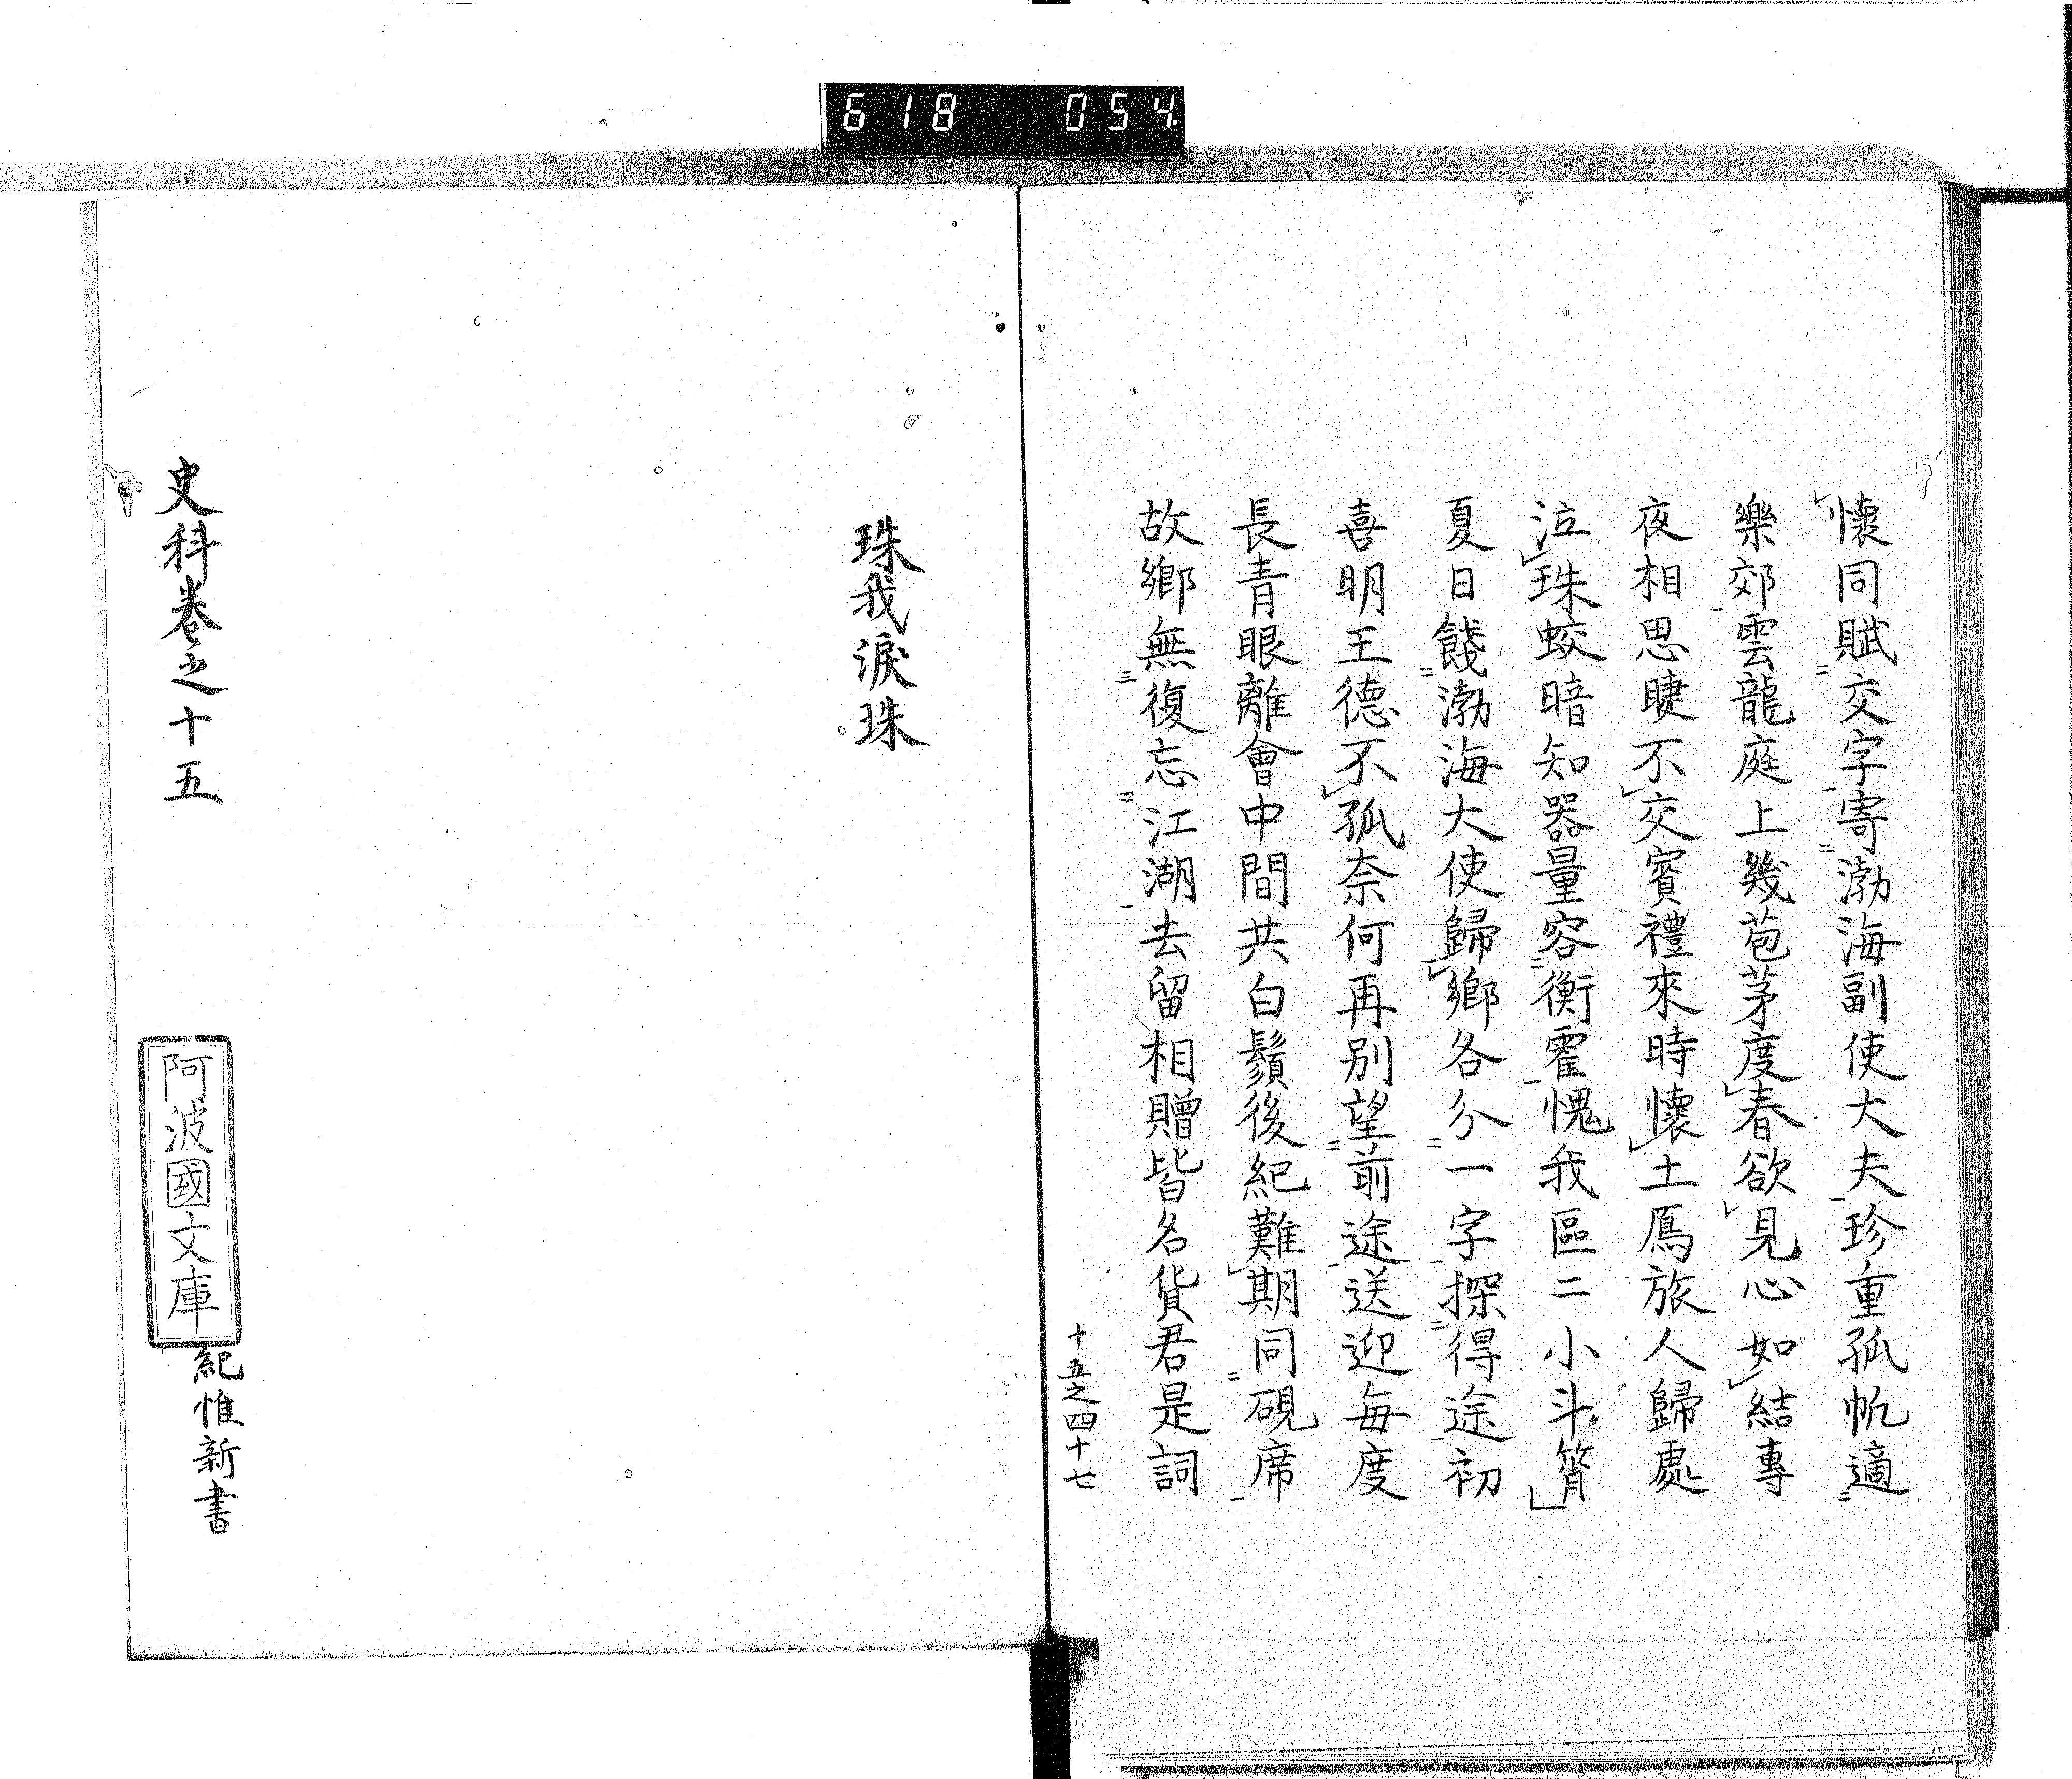 618 054
懷同賦交字寄渤海副使大夫珍重孤帆適
樂郊雲龍庭上幾苞茅度春欲見心如結專
夜相思睫不交賓禮來時懷土鳫旅人歸處
泣珠蛟暗知器量容衡霍愧我區二小斗筲
夏日餞渤海大使歸鄉各分一字探得途初
喜明王德不孤奈何再别望前途送迎每度
長青眼離會中間共白鬚後紀難期同硯席
故鄉無復忘江湖去留相贈皆名貨君是詞
十五之四十七
珠我淚珠
史科巻之十五
阿波國文庫
紀惟新書